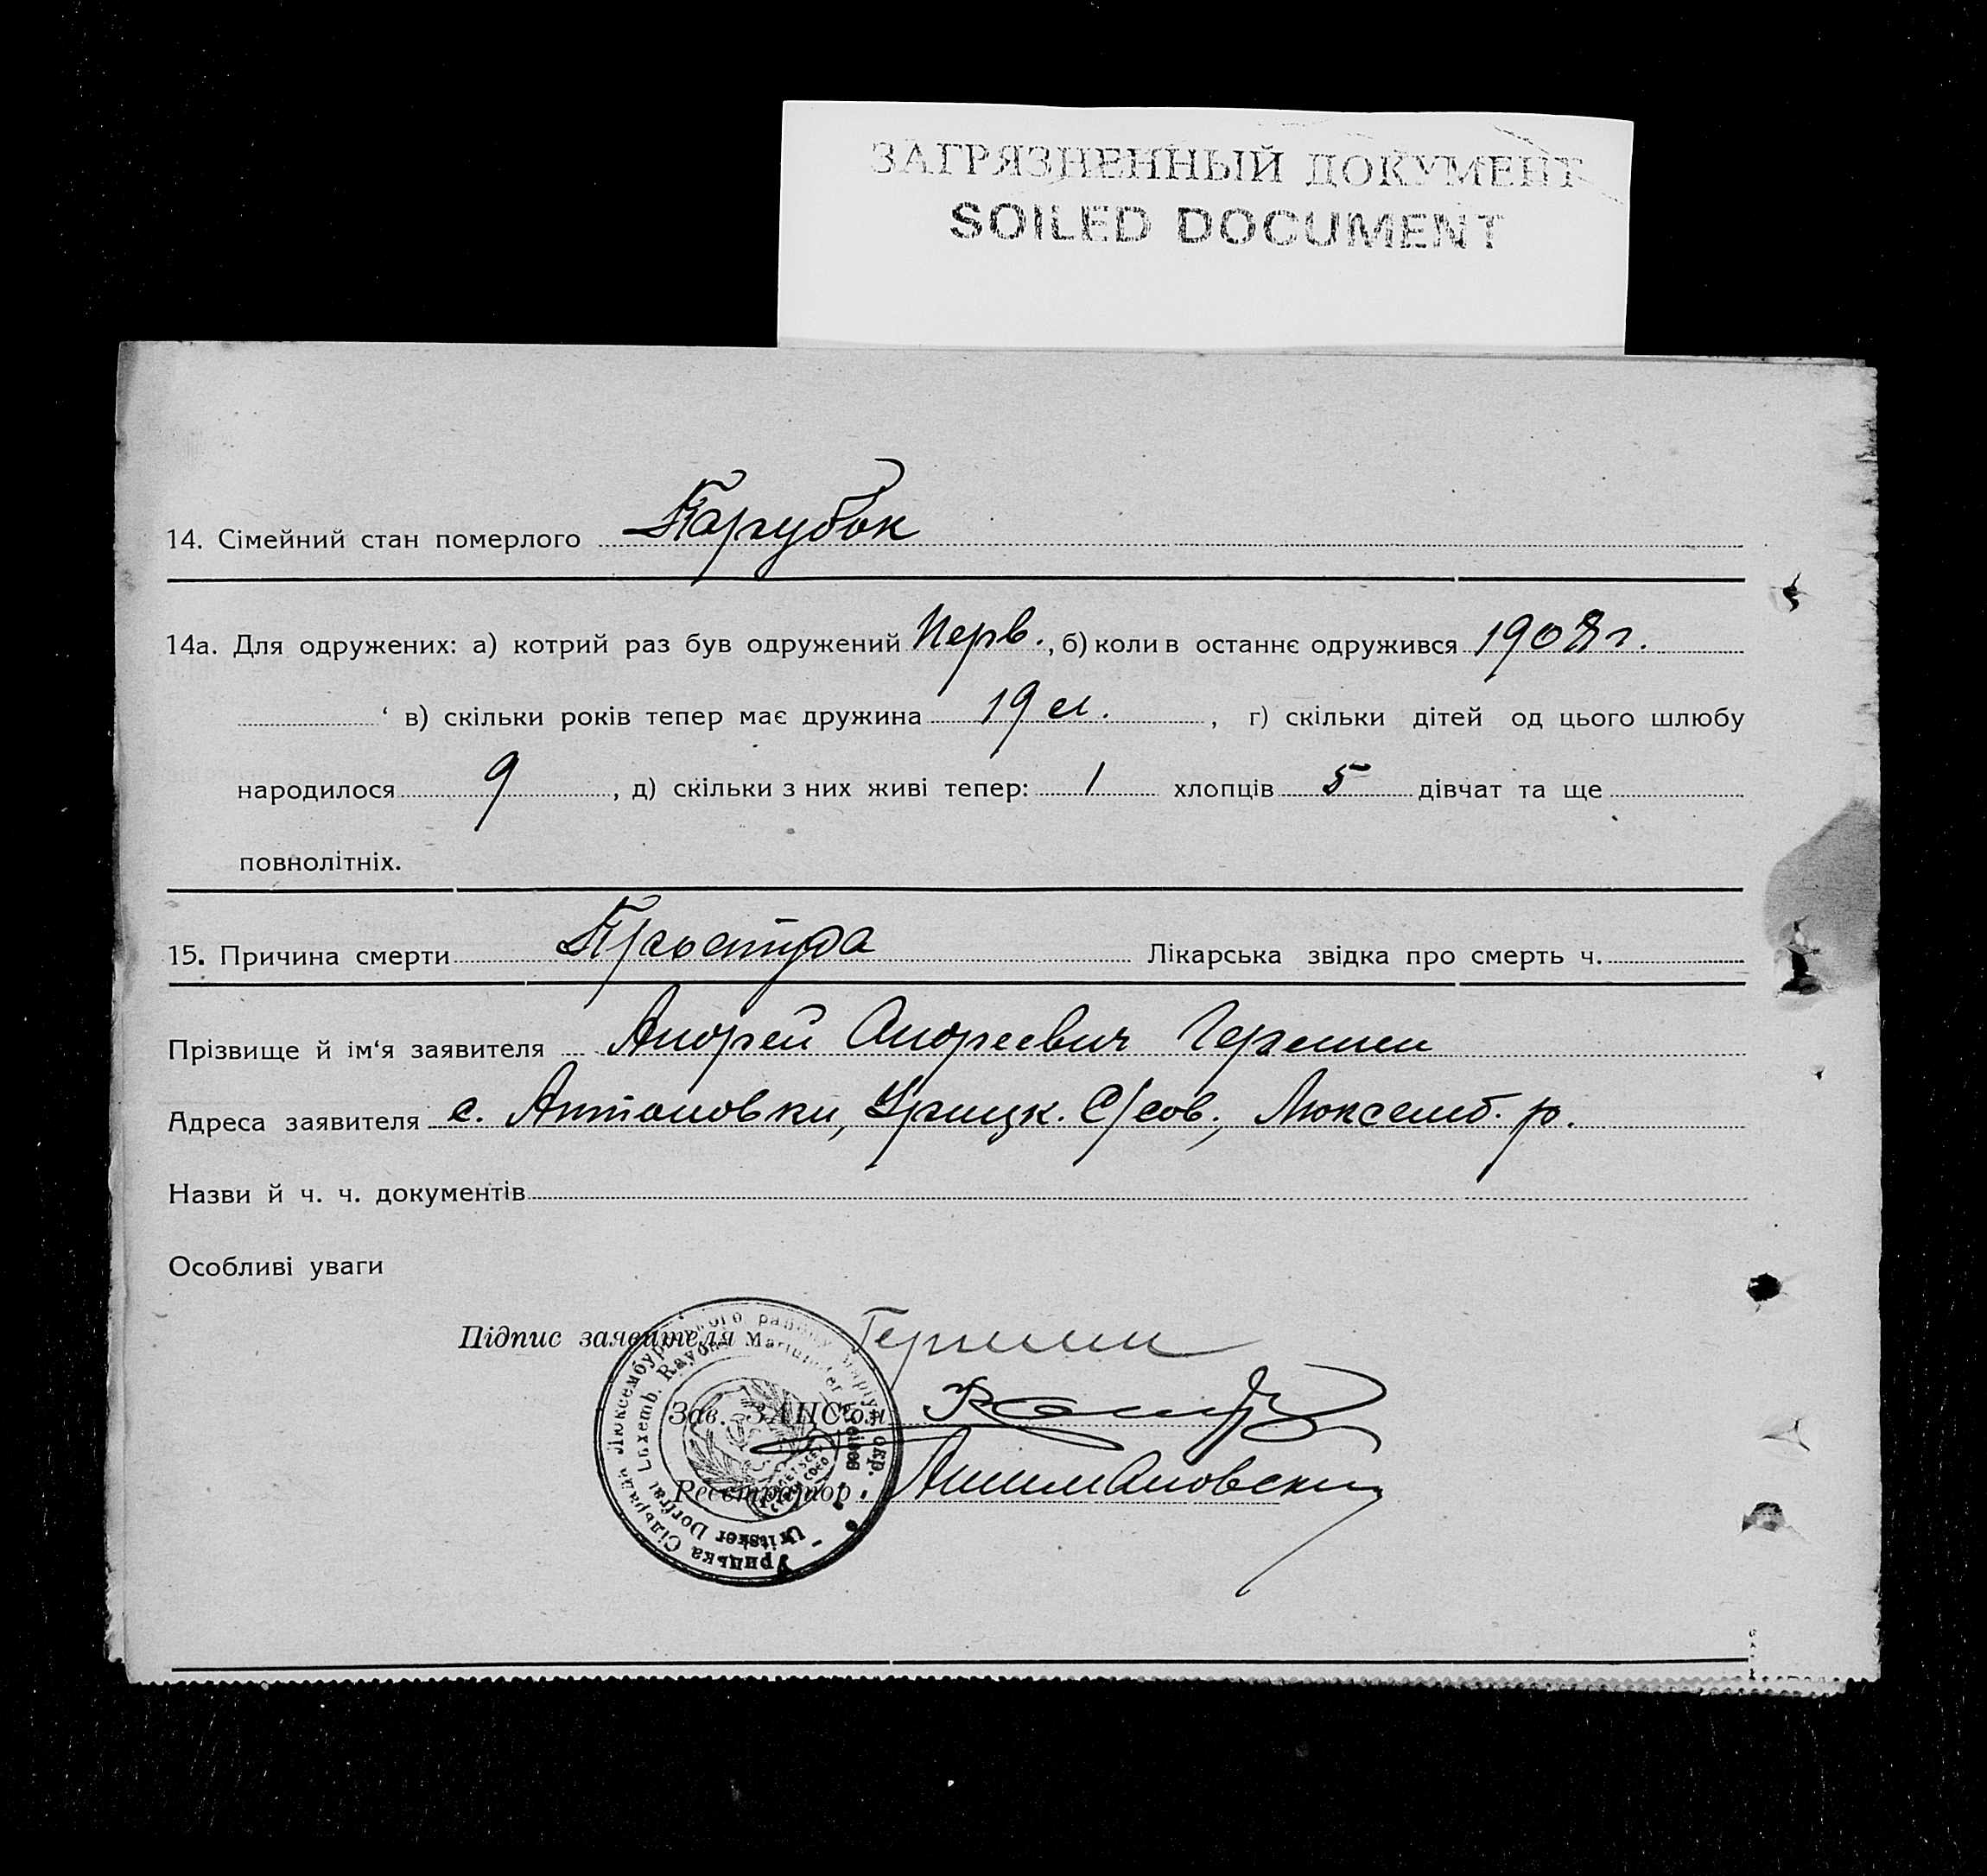 ЗАГРЯЗНЕННЫЙ ДОКУМЕНТ
SOILED DOCUMENT
14. Сімейний стан померлого Парубок
14а. Для одружених: а) котрий раз був одружений Перв., б) коли в останнє одружився 1908 г.
' в) скільки років тепер має дружина 19, г) скільки дітей од цього шлюбу
народилося 9, д) скільки з них живі тепер: 1 хлопців 5 дівчат та ще
повнолітніх.
15. Причина смерти Простуда Лікарська звідка про смерть ч.
Прізвище й ім'я заявителя Андрей Андреевич
Адреса заявителя с. Антоновки, Урицк. С/сов., Люксемб. р.
Назви й ч. ч. документів
Особливі уваги
Підпис заявителя
Зав. ЗАЦС'ом
Реєстратор
Урицька Сільрай Люксембурзького району Маріуп. окр.
Uritsker Dorfrat Luxemb. Rayons Mariupoler Kreises